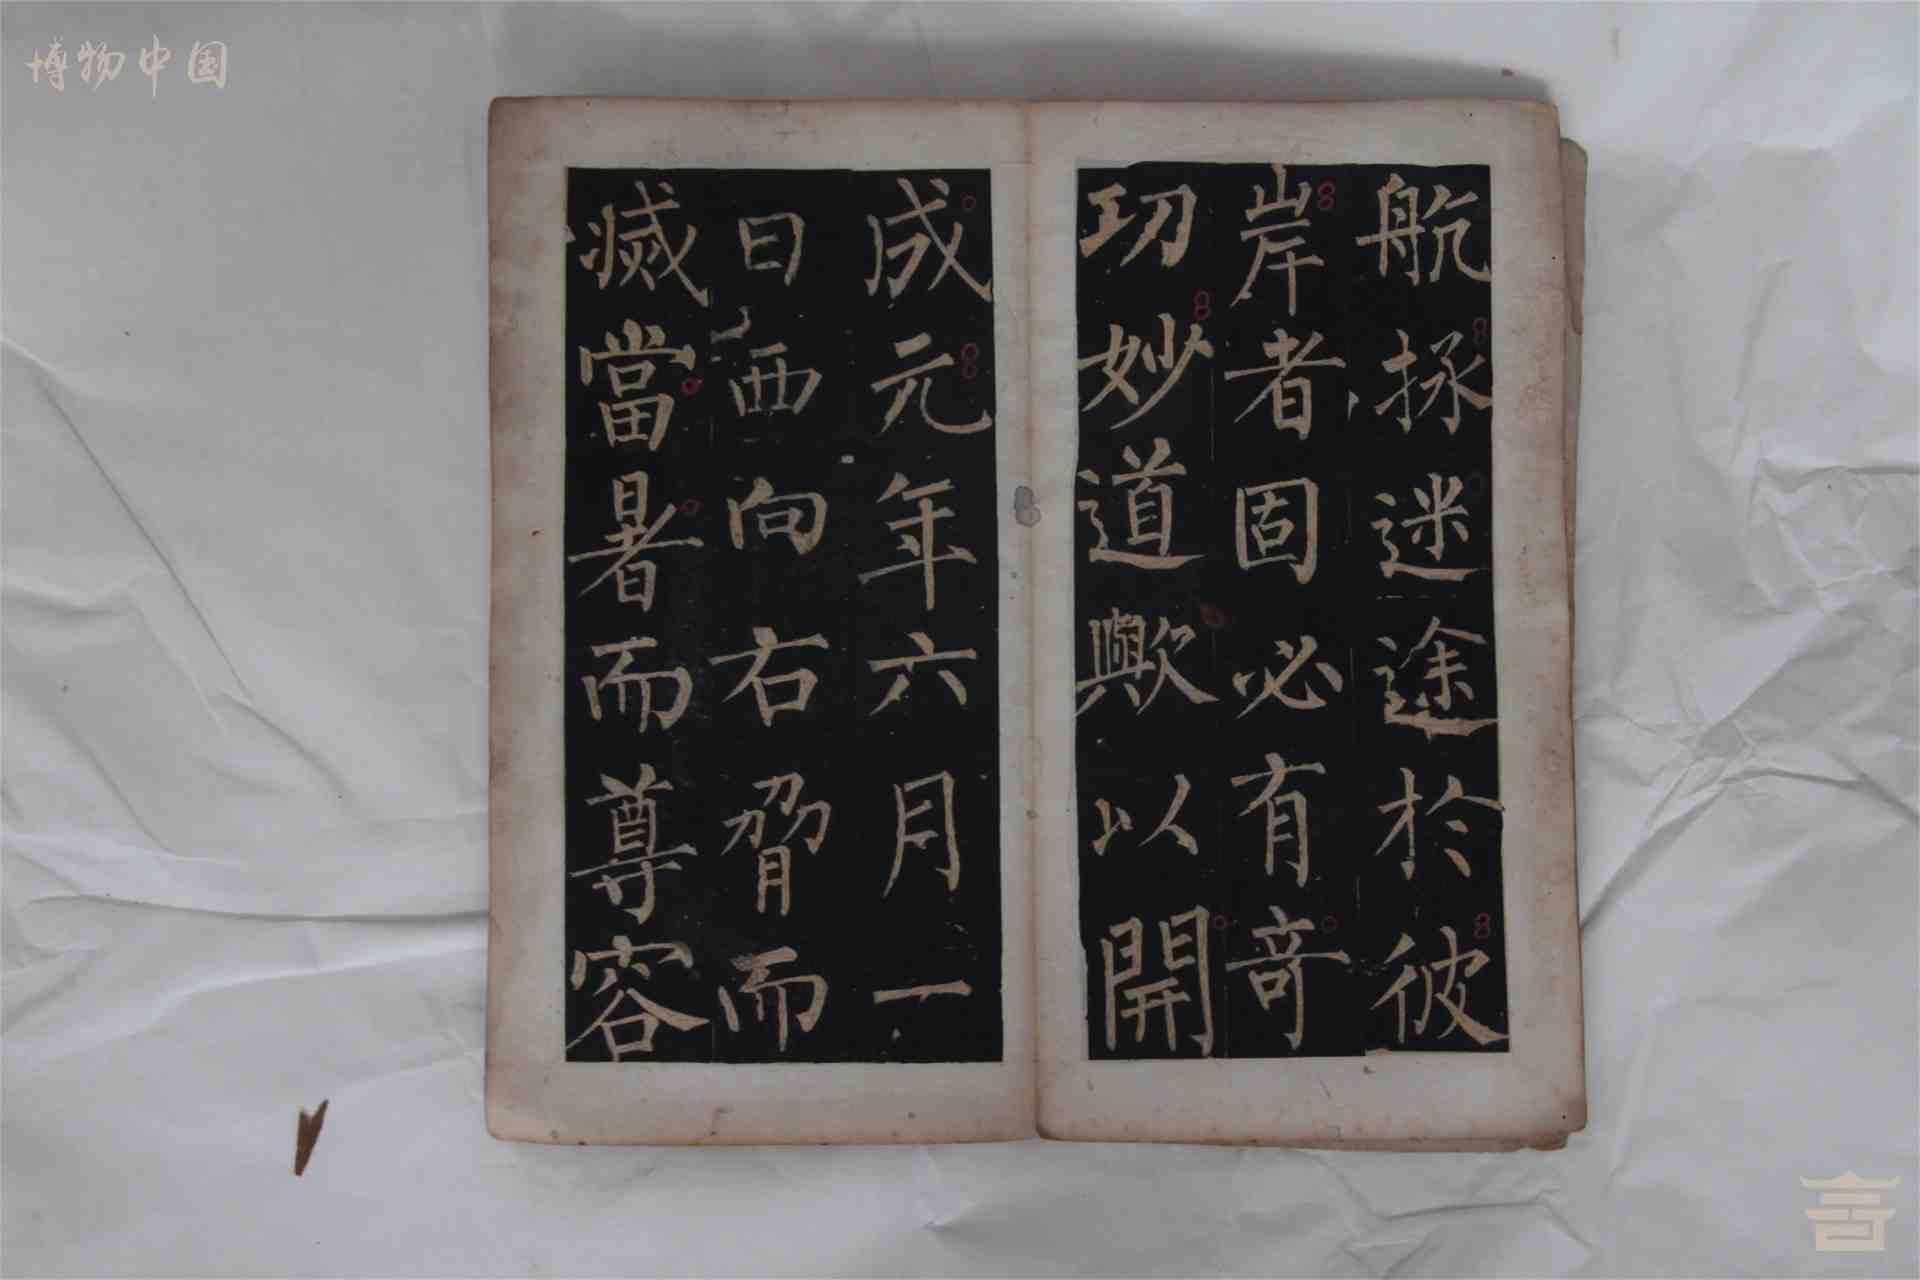 博物中国
航拯迷途於彼
岸者固必有竒
功妙道歟以開
成元年六月一
日西向右脅而
滅當暑而尊容